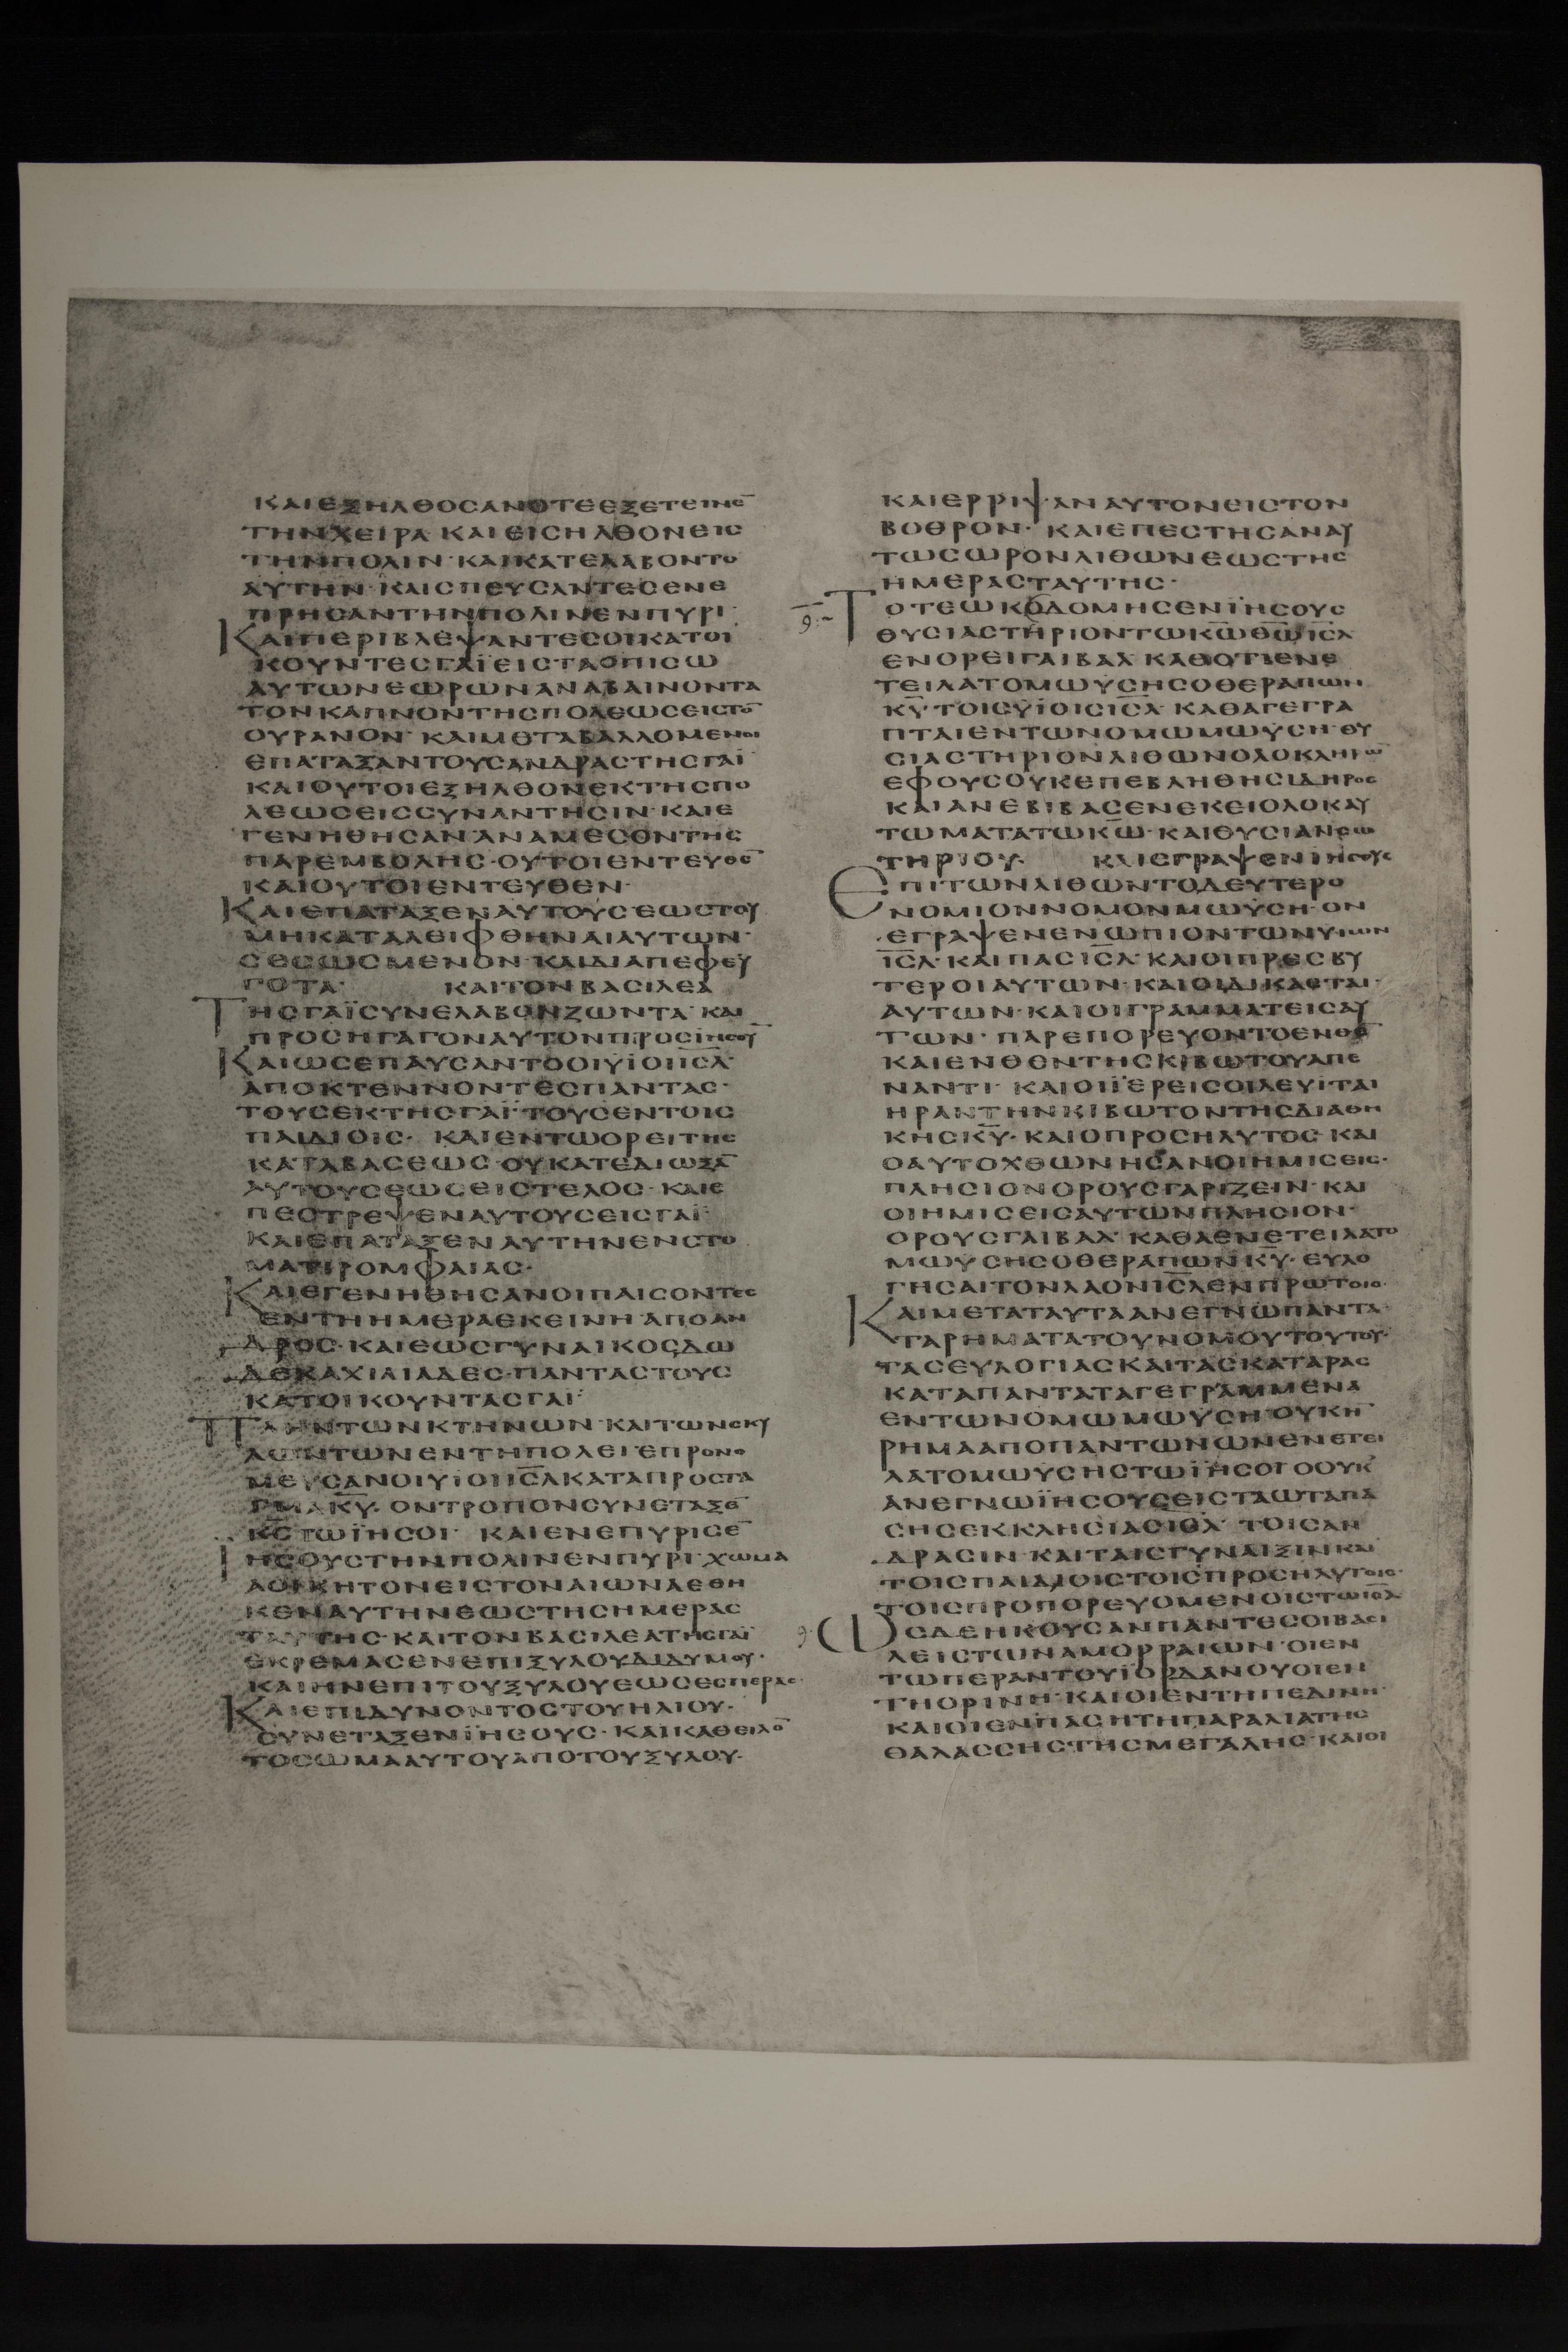 ΚΑΙΕΞΗΛΘΟCΑΝΟΤΕΕΞΕΤΕΙΝΕ̅
ΤΗΝΧΕΙΡΑ ΚΑΙΕΙCΗΛΘΟΝΕΙC
ΤΗΝΠΟΛΙΝ· ΚΑΙΚΑΤΕΛΑΒΟΝΤΟ
ΑΥΤΗΝ· ΚΑΙCΠΕΥCΑΝΤΕCΕΝΕ
ΠΡΗCΑΝΤΗΝΠΟΛΙΝΕΝΠΥΡΙ·
ΚΑΙΠΕΡΙΒΛΕΨΑΝΤΕCΟΙΚΑΤΟΙ
ΚΟΥΝΤΕCΓΑΪΕΙCΤΑΟΠΙCΩ
ΑΥΤΩΝΕΩΡΩΝΑΝΑΒΑΙΝΟΝΤΑ
ΤΟΝΚΑΠΝΟΝΤΗCΠΟΛΕΩCΕΙCΤΟ̅
ΟΥΡΑΝΟΝ· ΚΑΙΜΕΤΑΒΑΛΛΟΜΕΝΟΙ
ΕΠΑΤΑΞΑΝΤΟΥCΑΝΔΡΑCΤΗCΓΑΪ
ΚΑΙΟΥΤΟΙΕΞΗΛΘΟΝΕΚΤΗCΠΟ
ΛΕΩCΕΙCCΥΝΑΝΤΗCΙΝ· ΚΑΙΕ
ΓΕΝΗΘΗCΑΝΑΝΑΜΕCΟΝΤΗC
ΠΑΡΕΜΒΟΛΗC· ΟΥΤΟΙΕΝΤΕΥΘΕ̅
ΚΑΙΟΥΤΟΙΕΝΤΕΥΘΕΝ·
ΚΑΙΕΠΑΤΑΞΕΝΑΥΤΟΥCΕΩCΤΟΥ
ΜΗΚΑΤΑΛΕΙΦΘΗΝΑΙΑΥΤΩΝ·
CΕCΩCΜΕΝΟΝ· ΚΑΙΔΙΑΠΕΦΕΥ
ΓΟΤΑ· ΚΑΙΤΟΝΒΑCΙΛΕΑ
ΤΗCΓΑΪCΥΝΕΛΑΒΟΝΖΩΝΤΑ· ΚΑΙ
ΠΡΟCΗΓΑΓΟΝΑΥΤΟΝΠΡΟCΙΗCΟΥ̅
ΚΑΙΩCΕΠΑΥCΑΝΤΟΟΙΥΪΟΙΙC̅Λ·
ΑΠΟΚΤΕΝΝΟΝΤΕCΠΑΝΤΑC·
ΤΟΥCΕΚΤΗCΓΑΪ· ΤΟΥCΕΝΤΟΙC
ΠΑΙΔΙΟΙC· ΚΑΙΕΝΤΩΟΡΕΙΤΗC
ΚΑΤΑΒΑCΕΩC· ΟΥΚΑΤΕΔΙΩΞΑ̅
ΑΥΤΟΥCΕΩCΕΙCΤΕΛΟC· ΚΑΙΕ
ΠΕCΤΡΕΨΕΝΑΥΤΟΥCΕΙCΓΑΪ·
ΚΑΙΕΠΑΤΑΞΕΝΑΥΤΗΝΕΝCΤΟ
ΜΑΤΙΡΟΜΦΑΙΑC·
ΚΑΙΕΓΕΝΗΘΗCΑΝΟΙΠΑΙCΟΝΤΕC
ΕΝΤΗΗΜΕΡΑΕΚΕΙΝΗ ΑΠΟΑΝ
ΔΡΟC· ΚΑΙΕΩCΓΥΝΑΙΚΟCΔΩ
ΔΕΚΑΧΙΛΙΑΔΕC· ΠΑΝΤΑCΤΟΥC
ΚΑΤΟΙΚΟΥΝΤΑCΓΑΪ·
ΠΛΗΝΤΩΝΚΤΗΝΩΝ· ΚΑΙΤΩΝCΚΥ
ΛΩΝΤΩΝΕΝΤΗΠΟΛΕΙΕΠΡΟΝΟ
ΜΕΥCΑΝΟΙΥΪΟΙΙC̅ΛΚΑΤΑΠΡΟCΤΑ
ΓΜΑΚ̅Υ̅· ΟΝΤΡΟΠΟΝCΥΝΕΤΑΞΕ̅
Κ̅C̅ΤΩΪΗCΟΙ· ΚΑΙΕΝΕΠΥΡΙCΕ̅
ΙΗCΟΥCΤΗΝΠΟΛΙΝΕΝΠΥΡΙ· ΧΩΜΑ
ΑΟΙΚΗΤΟΝΕΙCΤΟΝΑΙΩΝΑΕΘΗ
ΚΕΝΑΥΤΗΝΕΩCΤΗCΗΜΕΡΑC
ΤΑΥΤΗC· ΚΑΙΤΟΝΒΑCΙΛΕΑΤΗCΓΑΪ
ΕΚΡΕΜΑCΕΝΕΠΙΞΥΛΟΥΔΙΔΥΜΟΥ·
ΚΑΙΗΝΕΠΙΤΟΥΞΥΛΟΥΕΩCΕCΠΕΡΑC·
ΚΑΙΕΠΙΔΥΝΟΝΤΟCΤΟΥΗΛΙΟΥ·
CΥΝΕΤΑΞΕΝΪΗCΟΥC· ΚΑΙΚΑΘΕΙΛΟ̅
ΤΟCΩΜΑΑΥΤΟΥΑΠΟΤΟΥΞΥΛΟΥ·
ΚΑΙΕΡΡΙΨΑΝΑΥΤΟΝΕΙCΤΟΝ
ΒΟΘΡΟΝ· ΚΑΙΕΠΕCΤΗCΑΝΑΥ
ΤΩCΩΡΟΝΛΙΘΩΝΕΩCΤΗC
ΗΜΕΡΑCΤΑΥΤΗC·
ΤΟΤΕΩΚΟΔΟΜΗCΕΝΪΗCΟΥC
ΘΥCΙΑCΤΗΡΙΟΝΤΩΚ̅Ω̅Θ̅Ω̅ΙC̅Λ
ΕΝΟΡΕΙΓΑΙΒΑΛ ΚΑΘΟΤΙΕΝΕ
ΤΕΙΛΑΤΟΜΩΥCΗCΟΘΕΡΑΠΩΝ
Κ̅Υ̅· ΤΟΙCΥΪΟΙCΙC̅Λ· ΚΑΘΑΓΕΓΡΑ
ΠΤΑΙΕΝΤΩΝΟΜΩΜΩΥCΗ· ΘΥ
CΙΑCΤΗΡΙΟΝΛΙΘΩΝΟΛΟΚΛΗΡΩ̅
ΕΦΟΥCΟΥΚΕΠΕΒΛΗΘΗCΙΔΗΡΟC
ΚΑΙΑΝΕΒΙΒΑCΕΝΕΚΕΙΟΛΟΚΑΥ
ΤΩΜΑΤΑΤΩΚ̅Ω̅· ΚΑΙΘΥCΙΑΝCΩ
ΤΗΡΙΟΥ· ΚΑΙΕΓΡΑΨΕΝΙΗCΟΥC
ΕΠΙΤΩΝΛΙΘΩΝΤΟΔΕΥΤΕΡΟ
ΝΟΜΙΟΝΝΟΜΟΝΜΩΥCΗ· ΟΝ
ΕΓΡΑΨΕΝΕΝΩΠΙΟΝΤΩΝΥΙΩΝ
ΙC̅Λ· ΚΑΙΠΑCΙC̅Λ· ΚΑΙΟΙΠΡΕCΒΥ
ΤΕΡΟΙΑΥΤΩΝ· ΚΑΙΟΙΔΙΚΑCΤΑΙ·
ΑΥΤΩΝ· ΚΑΙΟΙΓΡΑΜΜΑΤΕΙCΑΥ
ΤΩΝ· ΠΑΡΕΠΟΡΕΥΟΝΤΟΕΝΘΕ̅
ΚΑΙΕΝΘΕΝΤΗCΚΙΒΩΤΟΥΑΠΕ
ΝΑΝΤΙ· ΚΑΙΟΙΪΕΡΕΙCΟΙΛΕΥΙΤΑΙ
ΗΡΑΝΤΗΝΚΙΒΩΤΟΝΤΗCΔΙΑΘΗ
ΚΗCΚ̅Υ̅· ΚΑΙΟΠΡΟCΗΛΥΤΟC· ΚΑΙ
ΟΑΥΤΟΧΘΩΝΗCΑΝΟΙΗΜΙCΕΙC·
ΠΛΗCΙΟΝΟΡΟΥCΓΑΡΙΖΕΙΝ· ΚΑΙ
ΟΙΗΜΙCΕΙCΑΥΤΩΝΠΛΗCΙΟΝ·
ΟΡΟΥCΓΑΙΒΑΛ· ΚΑΘΑΕΝΕΤΕΙΛΑΤΟ
ΜΩΥCΗCΟΘΕΡΑΠΩΝΚ̅Υ̅· ΕΥΛΟ
ΓΗCΑΙΤΟΝΛΑΟΝΙC̅ΛΕΝΠΡΩΤΟΙC·
ΚΑΙΜΕΤΑΤΑΥΤΑΑΝΕΓΝΩΠΑΝΤΑ
ΤΑΡΗΜΑΤΑΤΟΥΝΟΜΟΥΤΟΥΤΟΥ·
ΤΑCΕΥΛΟΓΙΑCΚΑΙΤΑCΚΑΤΑΡΑC
ΚΑΤΑΠΑΝΤΑΤΑΓΕΓΡΑΜΜΕΝΑ
ΕΝΤΩΝΟΜΩΜΩΥCΗ ΟΥΚΗ̅
ΡΗΜΑΑΠΟΠΑΝΤΩΝΩΝΕΝΕΤΕΙ
ΛΑΤΟΜΩΥCΗCΤΩΪΗCΟΙ ΟΟΥΚ
ΑΝΕΓΝΩΪΗCΟΥCΕΙCΤΑΩΤΑΠΑ
CΗCΕΚΚΛΗCΙΑCΙC̅Λ· ΤΟΙCΑΝ
ΔΡΑCΙΝ· ΚΑΙΤΑΙCΓΥΝΑΙΞΙΝΚΑΙ
ΤΟΙCΠΑΙΔΙΟΙCΤΟΙCΠΡΟCΗΛΥΤΟΙC·
ΤΟΙCΠΡΟΠΟΡΕΥΟΜΕΝΟΙCΤΩΙC̅Λ
ΩCΔΕΗΚΟΥCΑΝΠΑΝΤΕCΟΙΒΑCΙ
ΛΕΙCΤΩΝΑΜΟΡΡΑΙΩΝ· ΟΙΕΝ
ΤΩΠΕΡΑΝΤΟΥΪΟΡΔΑΝΟΥΟΙΕΝ
ΤΗΟΡΙΝΗ· ΚΑΙΟΙΕΝΤΗΠΕΔΙΝΗ·
ΚΑΙΟΙΕΝΠΑCΗΤΗΠΑΡΑΛΙΑΤΗC
ΘΑΛΑCCΗCΤΗCΜΕΓΑΛΗC· ΚΑΙΟΙ